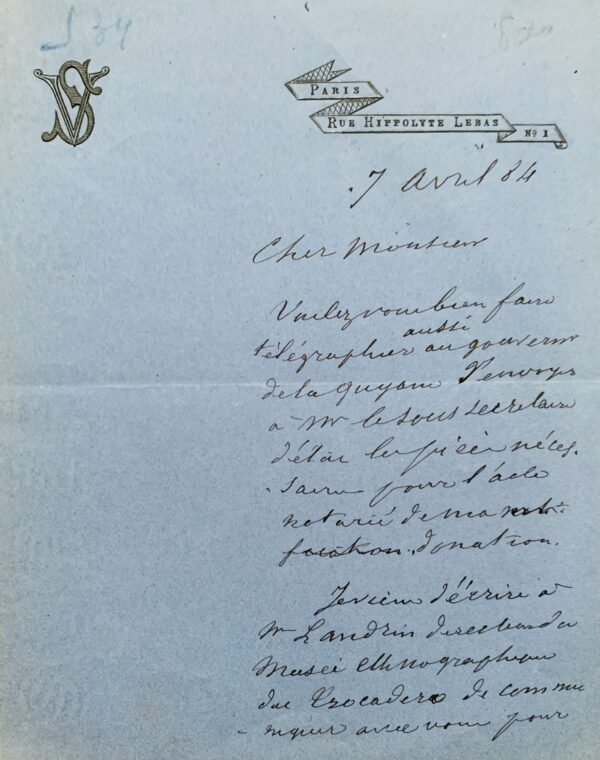 VS
PARIS
RUE HIPPOLYTE LEBAS
No 1
7 avril 84
Cher Monsieur
Voulez vous bien faire
aussi
télégraphier au gouverneur
de la Guyane d'envoyer
à Mr le sous secrétaire
d'état les pièces néces-
saires pour l'acte
notarié de ma
donation.
Je viens d'écrire à
Mr Landrin directeur du
Musée Ethnographique
du Trocadero de commu
niquer avec vous pour